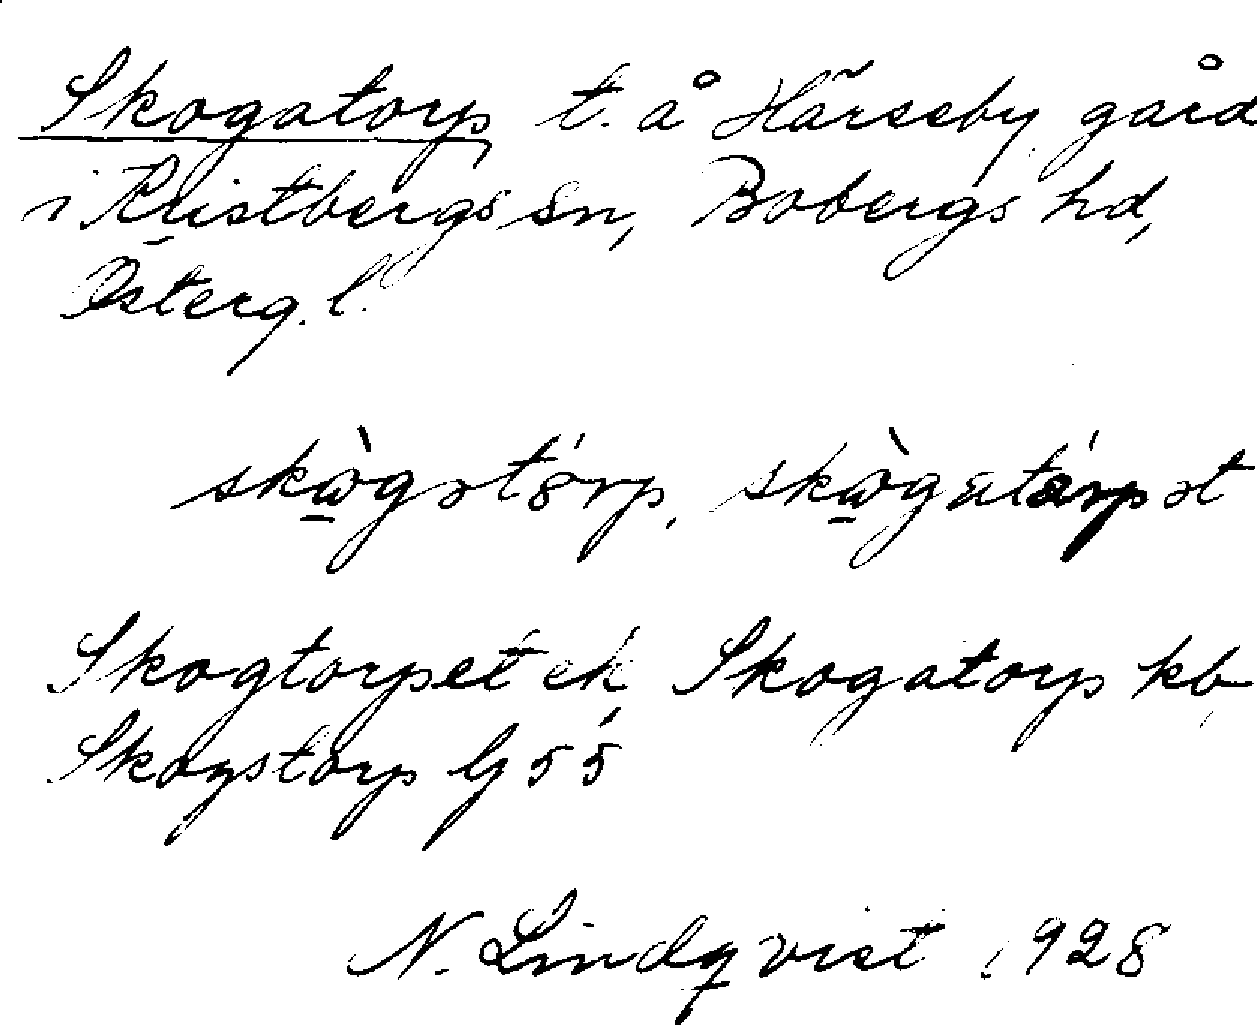 Skogatorp t. å Härseby gård
i Klistbergs sn, Bobergs hd,
Österg. l.
skògatórp, skògatórpət
Skogtorpet ek, Skogatorp kb,
Skogstorp G 55
N. Lindqvist 1928